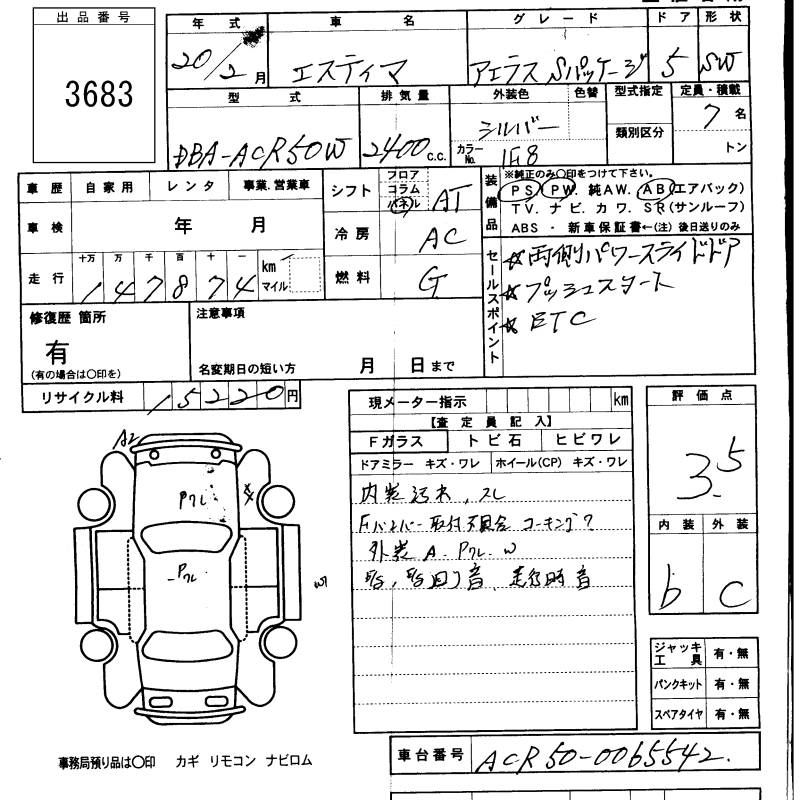 出品番号
3683
年式
20/2月
車名
エスティマ
グレード
アエラス Sパッケージ
ドア
5
形状
SW
型式
DBA-ACR50W
排気量
2400 c.c.
外装色
シルバー
色替
カラーNo.
1F8
型式指定
類別区分
定員・積載
7名
トン
車歴
自家用
レンタ
事業.営業車
車検
年 月
走行
十万 万 千 百 十 一
147874
km
マイル
シフト
フロア
コラム
パネル
AT
冷房
AC
燃料
G
装備品
※純正のみ〇印をつけて下さい。
PS. PW. 純AW. AB(エアバック)
TV. ナビ. カワ. SR(サンルーフ)
ABS ・ 新車保証書←(注) 後日送りのみ
セールスポイント
☆両側パワースライドドア
☆プッシュスタート
☆ETC
修復歴 箇所
有
(有の場合は〇印を)
注意事項
名変期日の短い方 月 日まで
リサイクル料
15220円
現メーター指示
km
【査定員記入】
Fガラス
トビ石
ヒビワレ
ドアミラー キズ・ワレ
ホイール(CP) キズ・ワレ
内装汚れ、スレ
Fバンパー取付不具合 コーキング?
外装 A. Pクレ. W
走行時音
評価点
3.5
内装
外装
b
C
A2
Pクレ
Pクレ
W
ジャッキ工具 有・無
パンクキット 有・無
スペアタイヤ 有・無
事務局預り品は〇印 カギ リモコン ナビロム
車台番号
ACR50-0065542.